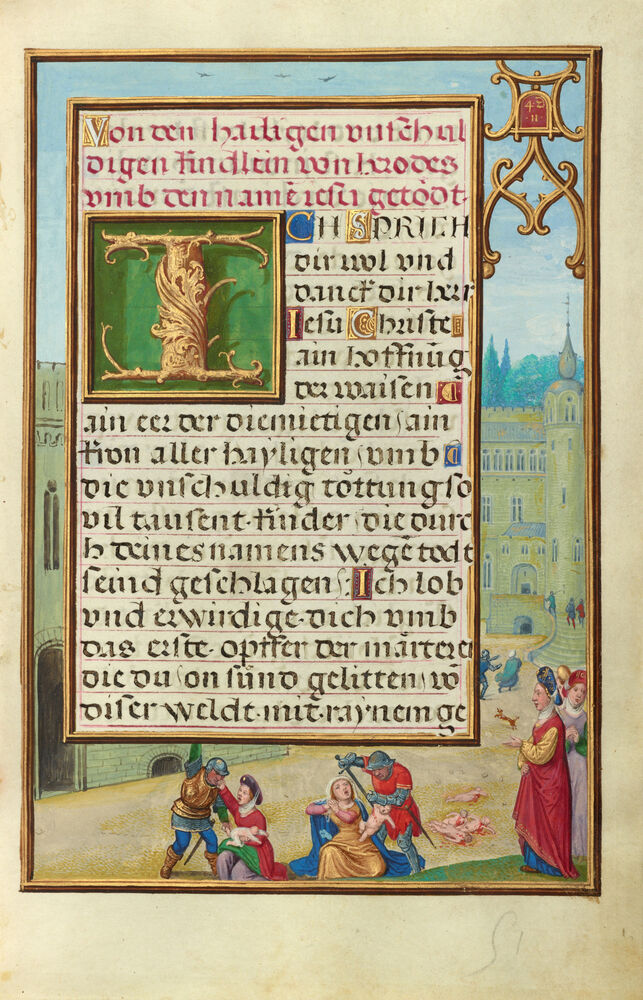 Von den hailigen unschul
digen kindlein von hrodes
umb den namē iesu getödt.
ICH SPRICH
dir wol und
danck dir herr
Iesu Christe
ain hoffnūg
der waisen
ain eer der diemietigen, ain
kron aller hayligen, vmb
die vnschuldig töttung so
vil tausent kinder, die durc
h deines namens wegē todt
seind geschlagen: Ich lob
vnd erwirdige dich vmb
das erste opffer der märterer
die du, on sünd gelitten, vō
diser weldt mit raynem ge
51